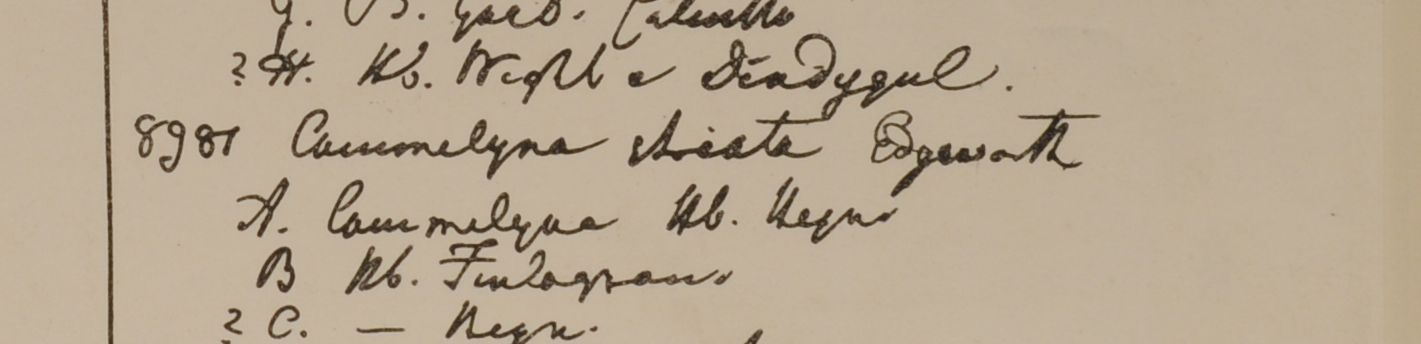 G. B. Gard. Calcutta
? H. Hb. Wight e Dindygul.
8981 Commelyna striata Edgeworth
A. Commelyna Hb. Heyn.
B Hb. Finlayson.
? C. — Heyn.